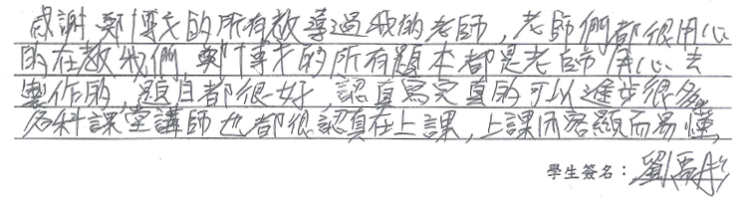 感謝鄭博文的所有教導過我的老師，老師們都很用心
的在教我們，鄭博文的所有題本都是老師用心去
製作的，題目都很好，認真寫完真的可以進步很多。
各科課堂講師也都很認真在上課，上課內容顯而易懂。
學生簽名：劉